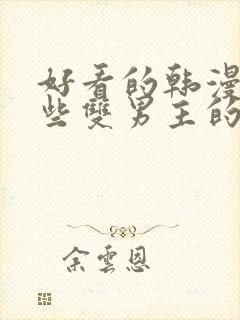 好看的韩漫
些雙男主的
余雲恩